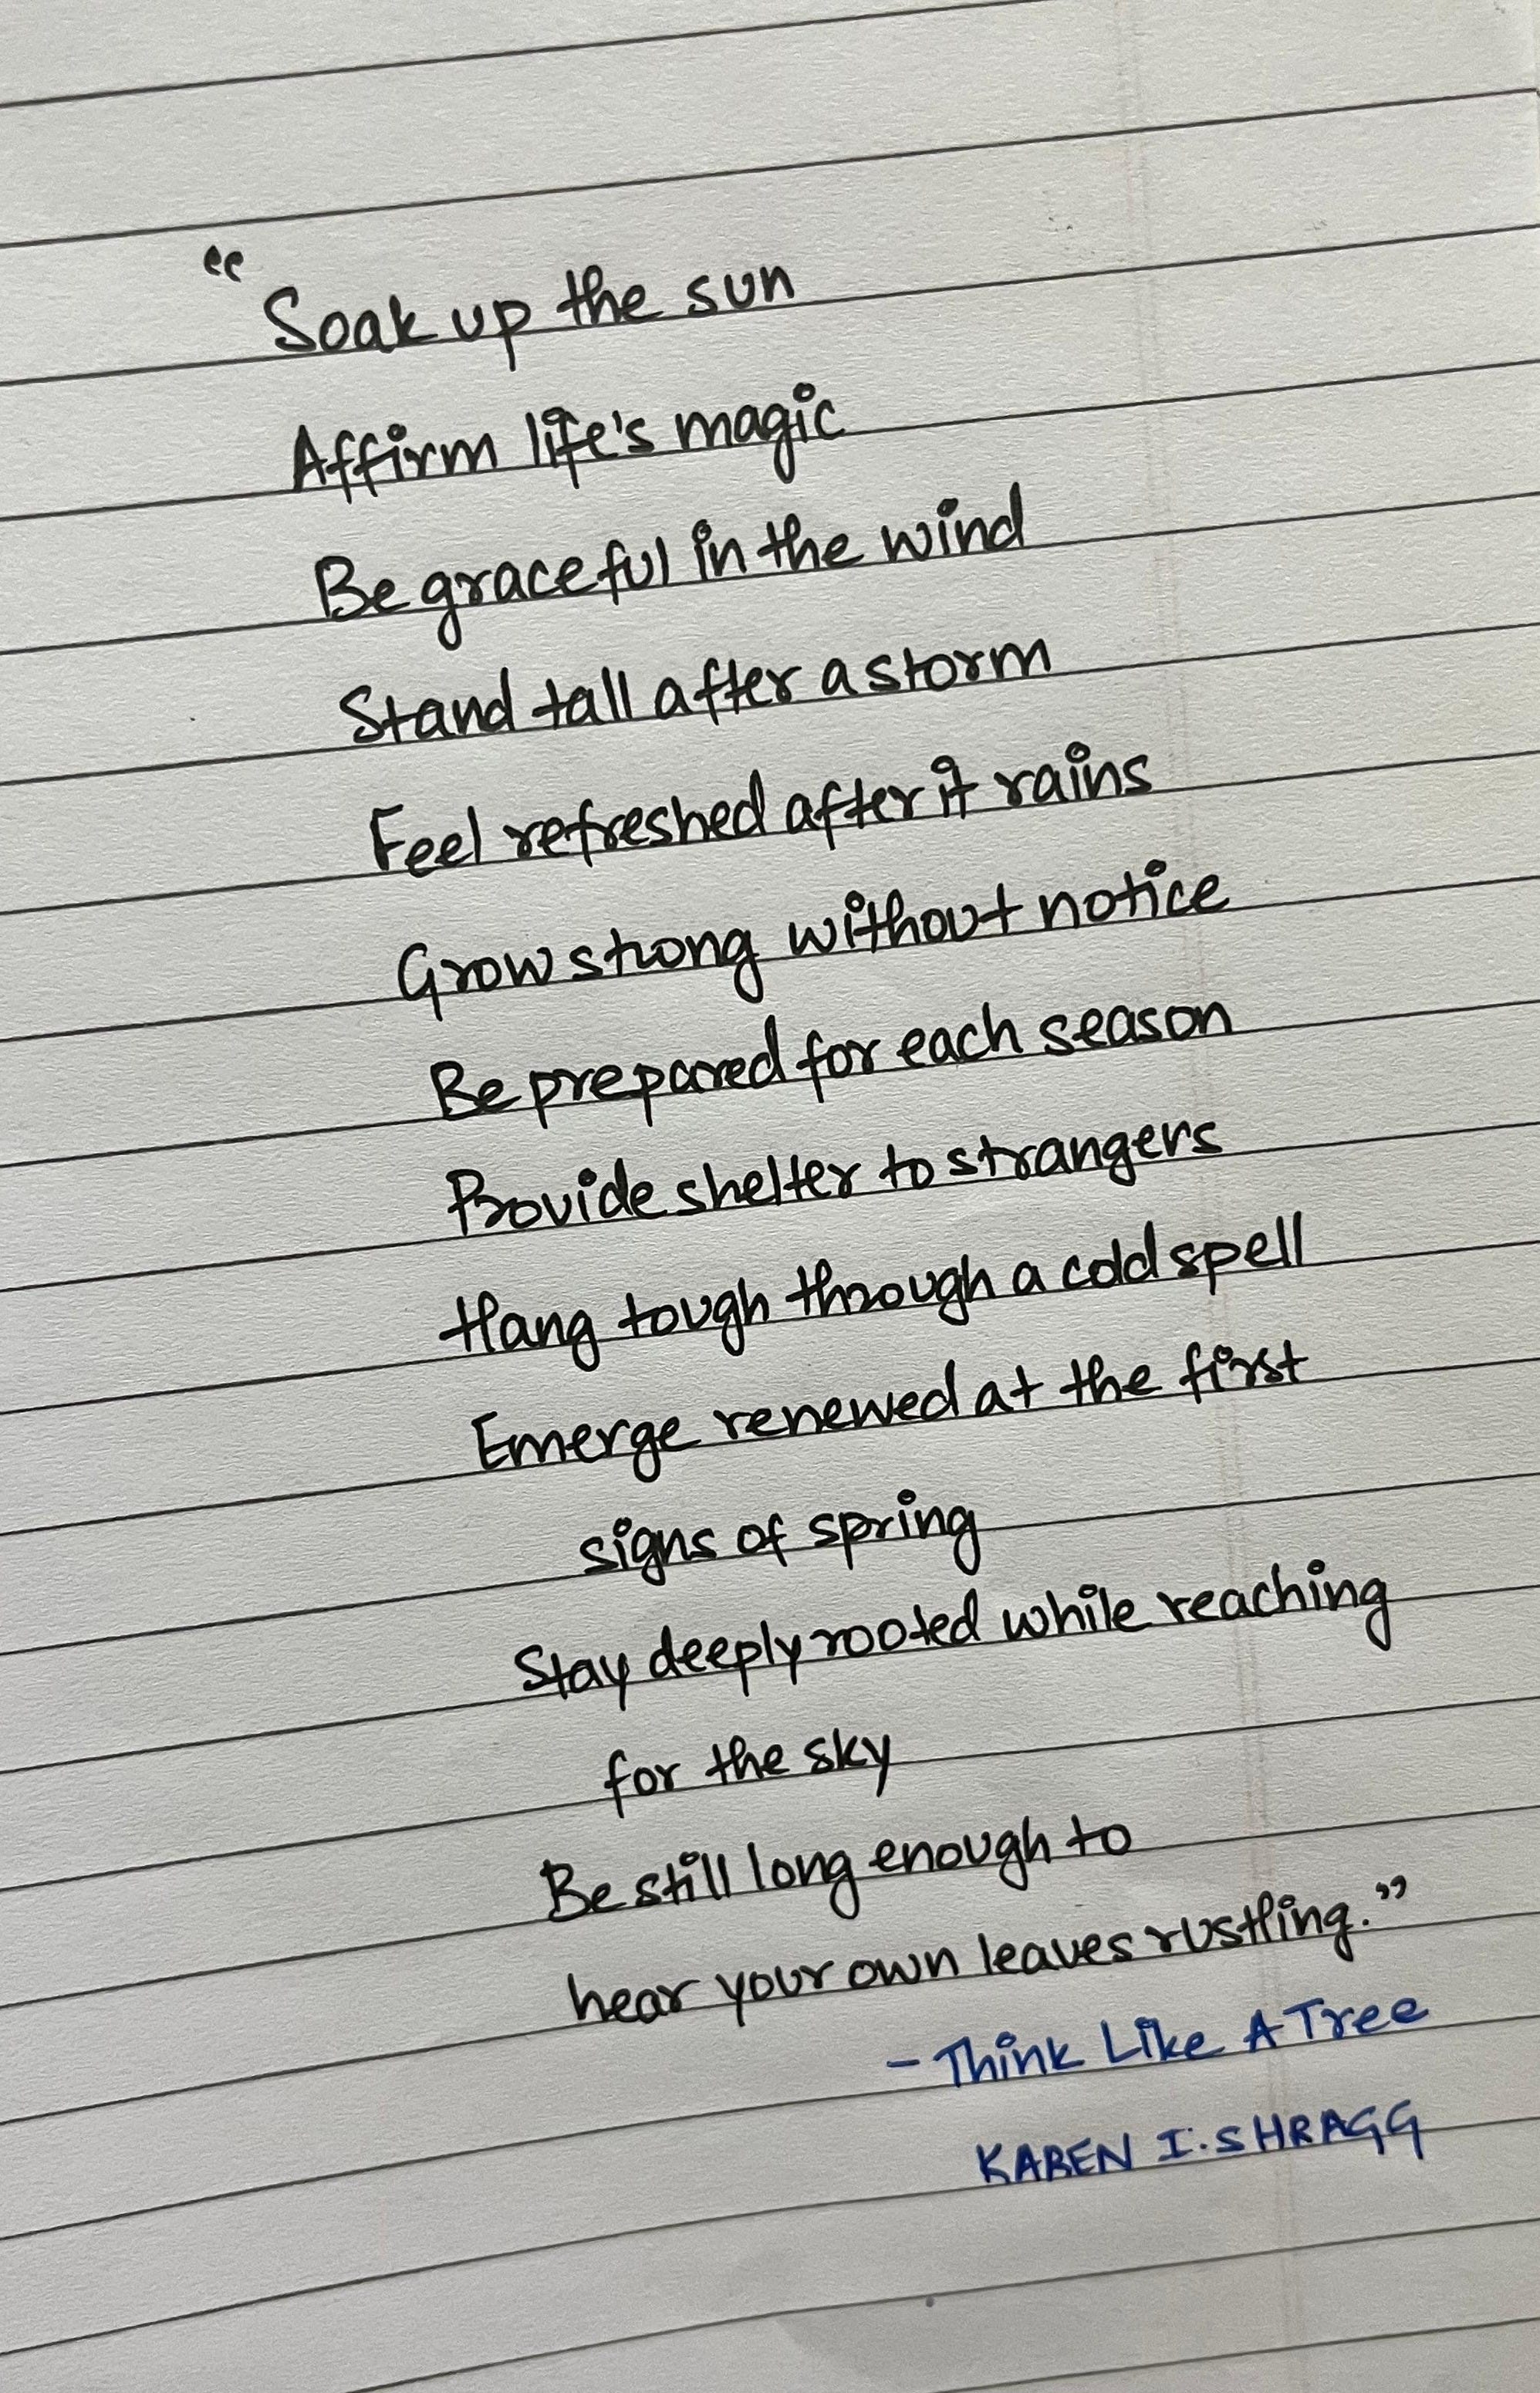 “Soak up the sun
Affirm life's magic
Be graceful in the wind
Stand tall after a storm
Feel refreshed after it rains
Grow strong without notice
Be prepared for each season
Provide shelter to strangers
Hang tough through a cold spell
Emerge renewed at the first
signs of spring
Stay deeply rooted while reaching
for the sky
Be still long enough to
hear your own leaves rustling.”
- Think Like A Tree
KAREN I. SHRAGG